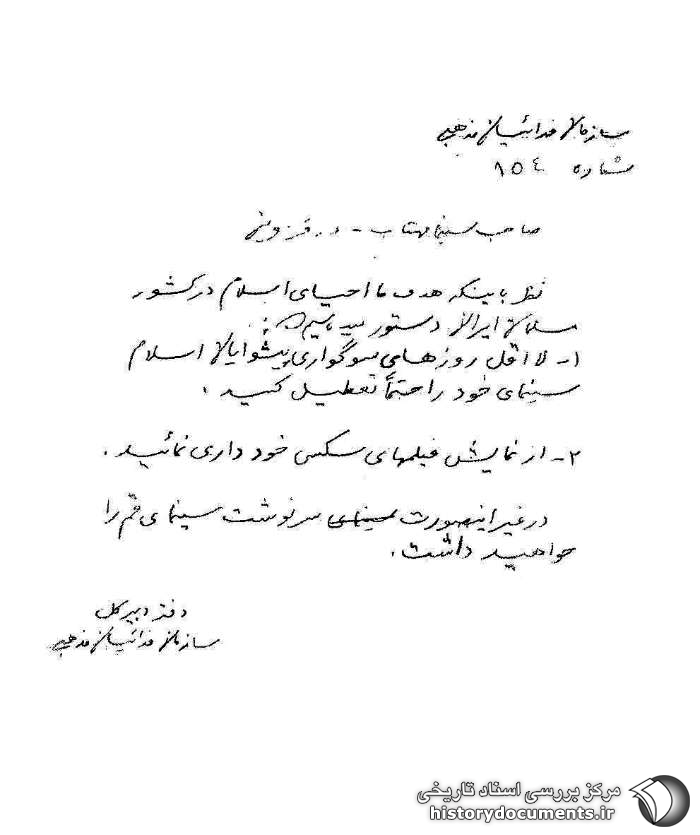 سازمان فدائیان مذهبی
شماره ۱۵۴
صاحب سینما مهتاب - در قزوین
نظر باینکه هدف ما احیای اسلام در کشور
مسلمان ایران دستور میدهیم که:
۱- لااقل روزهای سوگواری پیشوایان اسلام
سینمای خود را حتماً تعطیل کنید.
۲- از نمایش فیلمهای سکسی خودداری نمائید.
در غیر اینصورت سینمای سرنوشت سینمای قم را
خواهید داشت.
دفتر دبیر کل
سازمان فدائیان مذهبی
مرکز بررسی اسناد تاریخی
historydocuments.ir